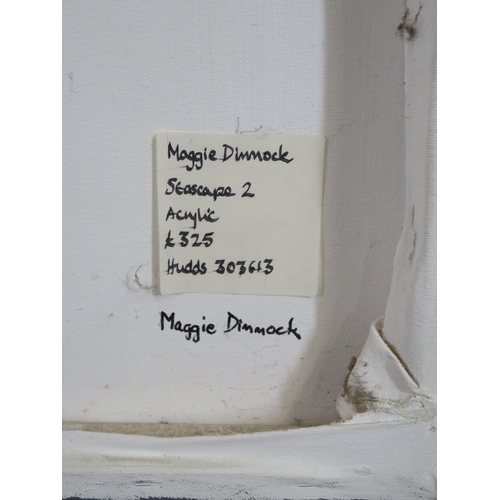 Maggie Dinnock
Seascape 2
Acrylic
£325
Hudds 303613
Maggie Dinnock